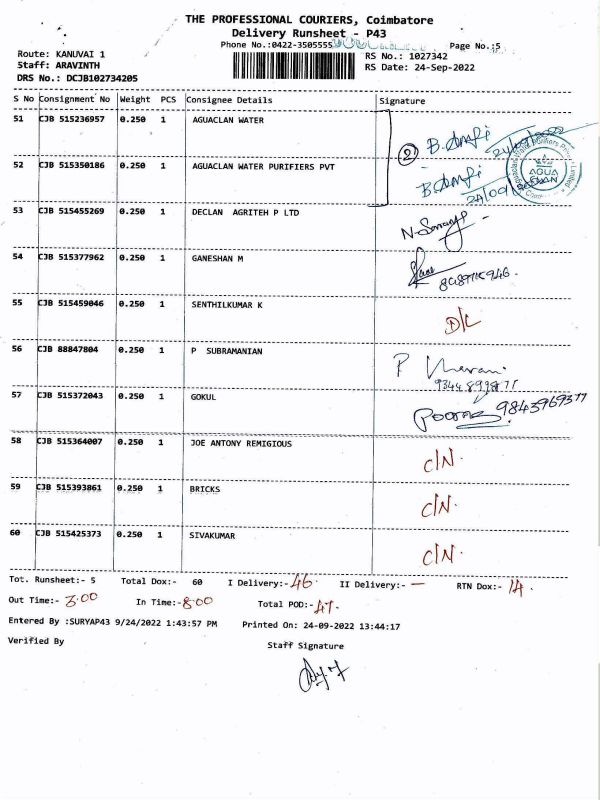 THE PROFESSIONAL COURIERS, Coimbatore
Delivery Runsheet - P43
Phone No.:0422-3505555 Page No.:5
Route: KANUVAI 1 RS No.: 1027342
Staff: ARAVINTH RS Date: 24-Sep-2022
DRS No.: DCJB102734205
S No Consignment No Weight PCS Consignee Details Signature
51 CJB 515236957 0.250 1 AGUACLAN WATER
52 CJB 515350186 0.250 1 AGUACLAN WATER PURIFIERS PVT
2
AGUA
CLAN
53 CJB 515455269 0.250 1 DECLAN AGRITEH P LTD
54 CJB 515377962 0.250 1 GANESHAN M
55 CJB 515459046 0.250 1 SENTHILKUMAR K D/L
56 CJB 88847804 0.250 1 P SUBRAMANIAN
57 CJB 515372043 0.250 1 GOKUL 9843969377
58 CJB 515364007 0.250 1 JOE ANTONY REMIGIOUS C/N.
59 CJB 515393861 0.250 1 BRICKS C/N.
60 CJB 515425373 0.250 1 SIVAKUMAR C/N.
Tot. Runsheet:- 5 Total Dox:- 60 I Delivery:- 46. II Delivery:- — RTN Dox:- 14.
Out Time:- 3.00 In Time:- 8.00 Total POD:- 47.
Entered By :SURYAP43 9/24/2022 1:43:57 PM Printed On: 24-09-2022 13:44:17
Verified By Staff Signature